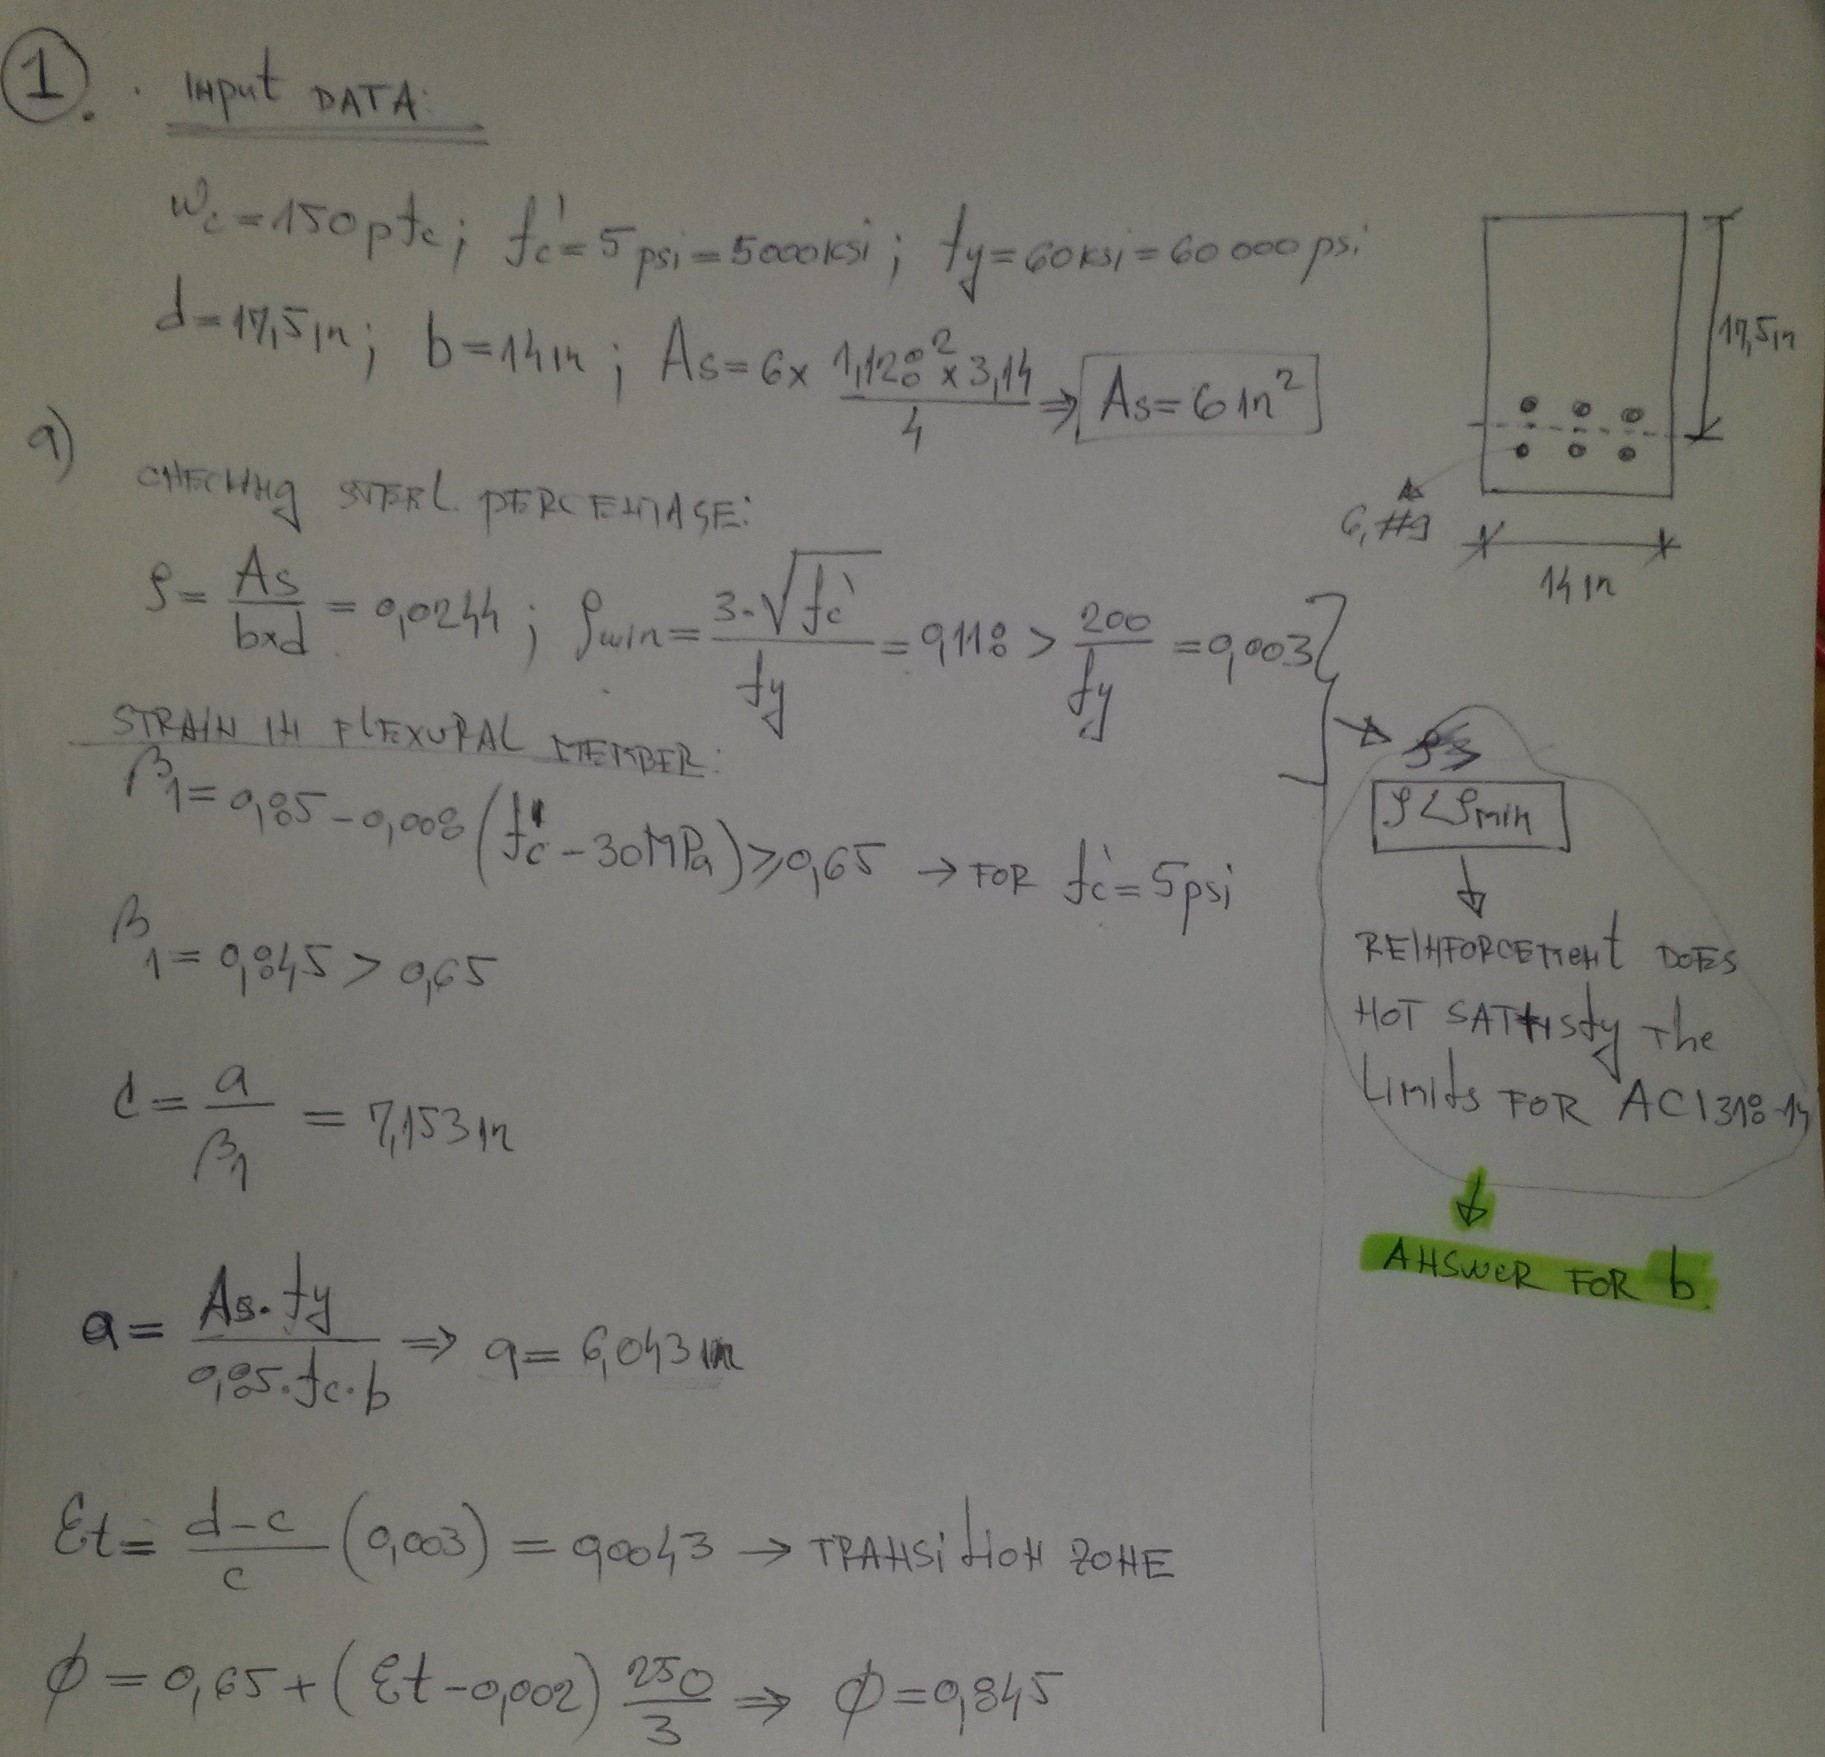 1.
INPUT DATA:
wc=150pfc; fc'=5psi=5000ksi; fy=60ksi=60000psi
d=17,5in; b=14in; As=6x 1,128²x3,14/4 ⇒ As=6in²
17,5in
6,#9
As
14in
a)
CHECKING STEEL PERCENTAGE:
ρ= As/bxd = 0,0244; ρmin= 3·√fc'/fy = 0,118 > 200/fy =0,003
STRAIN IN FLEXURAL MEMBER:
β1=0,85-0,008(fc'-30MPa)≥0,65 → FOR fc'=5psi
β1=0,845>0,65
c= a/β1 = 7,153in
a= As·fy/0,85·fc·b ⇒ a= 6,043in
εt= d-c/c (0,003)=0,0043 → TRANSITION ZONE
ϕ=0,65+(εt-0,002) 250/3 ⇒ ϕ=0,845
ρ<ρmin
REINFORCEMENT DOES
NOT SATISfy The
Limits FOR ACI318-14
ANSWER FOR b.